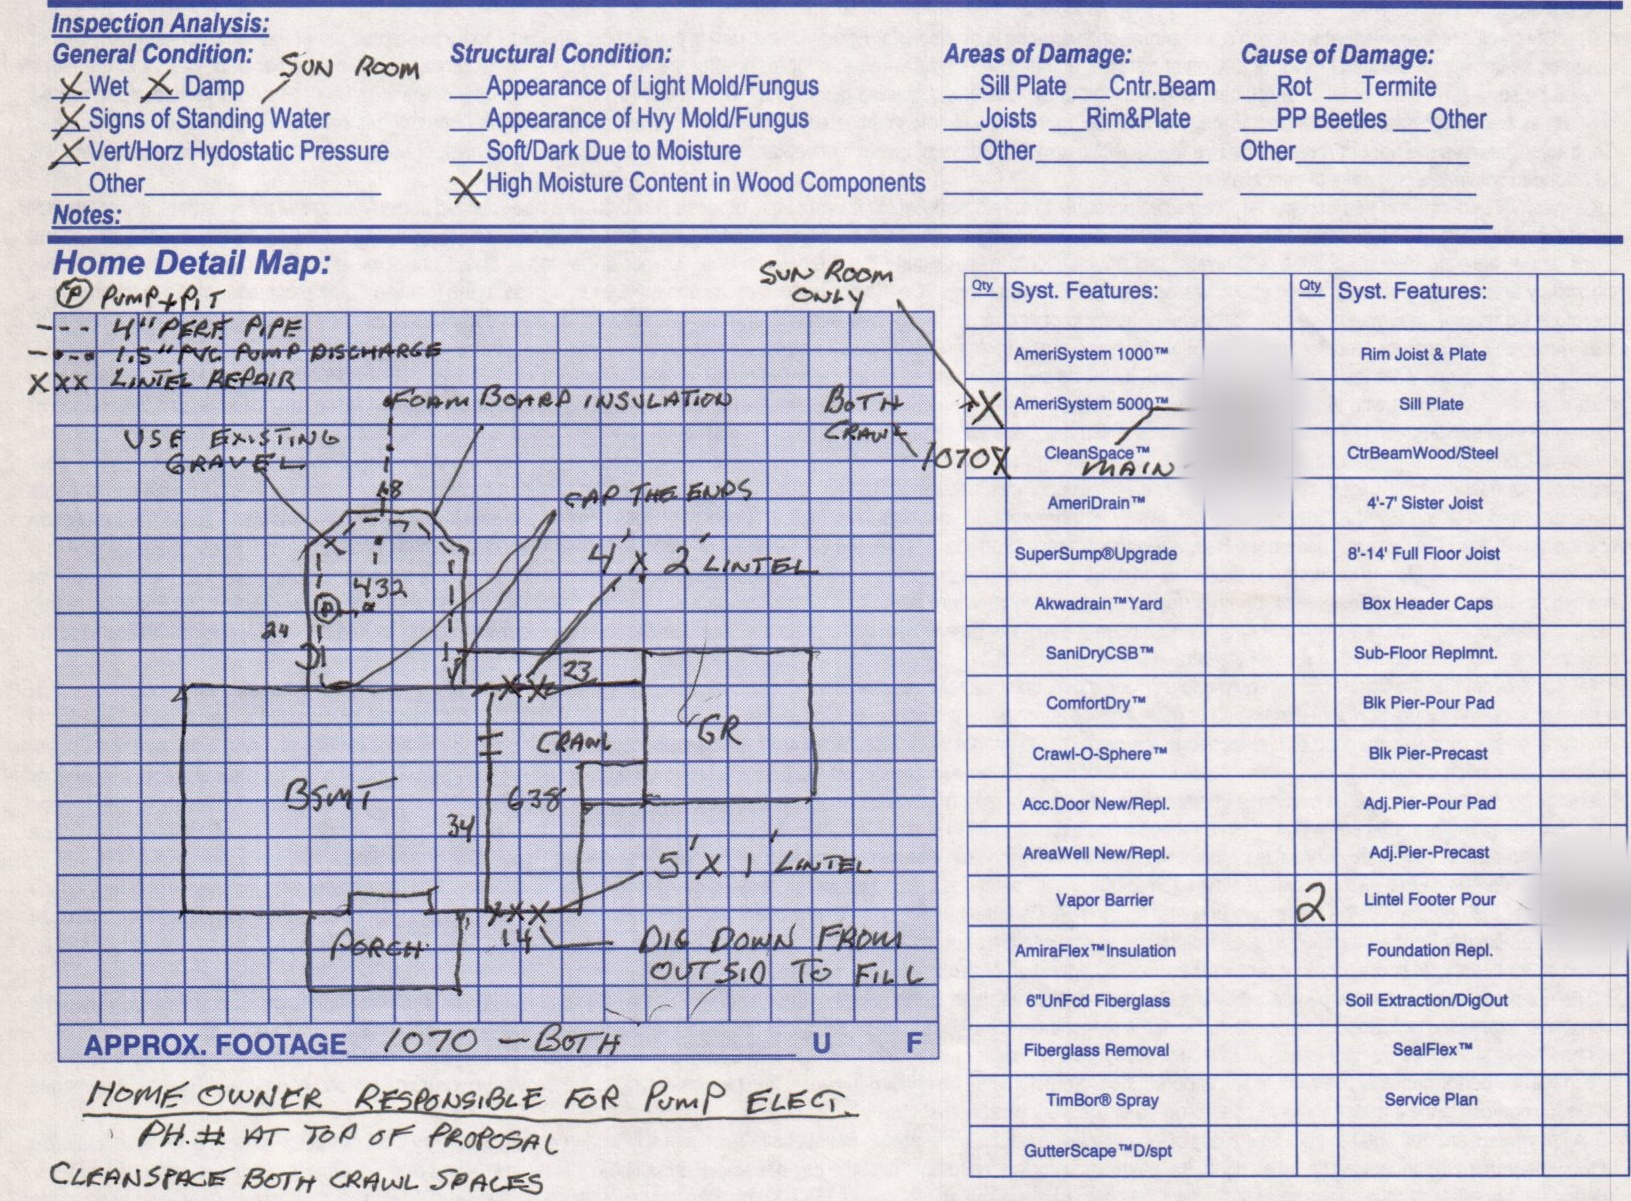 Inspection Analysis:
General Condition:
SUN ROOM
X Wet X Damp
X Signs of Standing Water
X Vert/Horz Hydostatic Pressure
Other
Structural Condition:
Appearance of Light Mold/Fungus
Appearance of Hvy Mold/Fungus
Soft/Dark Due to Moisture
X High Moisture Content in Wood Components
Areas of Damage:
Sill Plate Cntr.Beam
Joists Rim&Plate
Other
Cause of Damage:
Rot Termite
PP Beetles Other
Other
Notes:
Home Detail Map:
P PUMP + PIT
4" PERF. PIPE
1.5" PVC PUMP DISCHARGE
XXX LINTEL REPAIR
SUN ROOM
ONLY
FOAM BOARD INSULATION
BOTH
CRAWL
USE EXISTING
GRAVEL
18
CAP THE ENDS
4' X 2' LINTEL
432
P
24
23
CRAWL
GR
BSMT
638
34
5' X 1' LINTEL
XXX
14
PORCH
DIG DOWN FROM
OUTSID TO FILL
APPROX. FOOTAGE 1070 - BOTH U F
HOME OWNER RESPONSIBLE FOR PUMP ELECT.
PH.# AT TOP OF PROPOSAL
CLEANSPACE BOTH CRAWL SPACES
Qty Syst. Features:
AmeriSystem 1000™
X AmeriSystem 5000™
1070 X CleanSpace™
MAIN
AmeriDrain™
SuperSump®Upgrade
Akwadrain™Yard
SaniDryCSB™
ComfortDry™
Crawl-O-Sphere™
Acc.Door New/Repl.
AreaWell New/Repl.
Vapor Barrier
AmiraFlex™Insulation
6"UnFcd Fiberglass
Fiberglass Removal
TimBor® Spray
GutterScape™D/spt
Qty Syst. Features:
Rim Joist & Plate
Sill Plate
CtrBeamWood/Steel
4'-7' Sister Joist
8'-14' Full Floor Joist
Box Header Caps
Sub-Floor Replmnt.
Blk Pier-Pour Pad
Blk Pier-Precast
Adj.Pier-Pour Pad
Adj.Pier-Precast
2 Lintel Footer Pour
Foundation Repl.
Soil Extraction/DigOut
SealFlex™
Service Plan